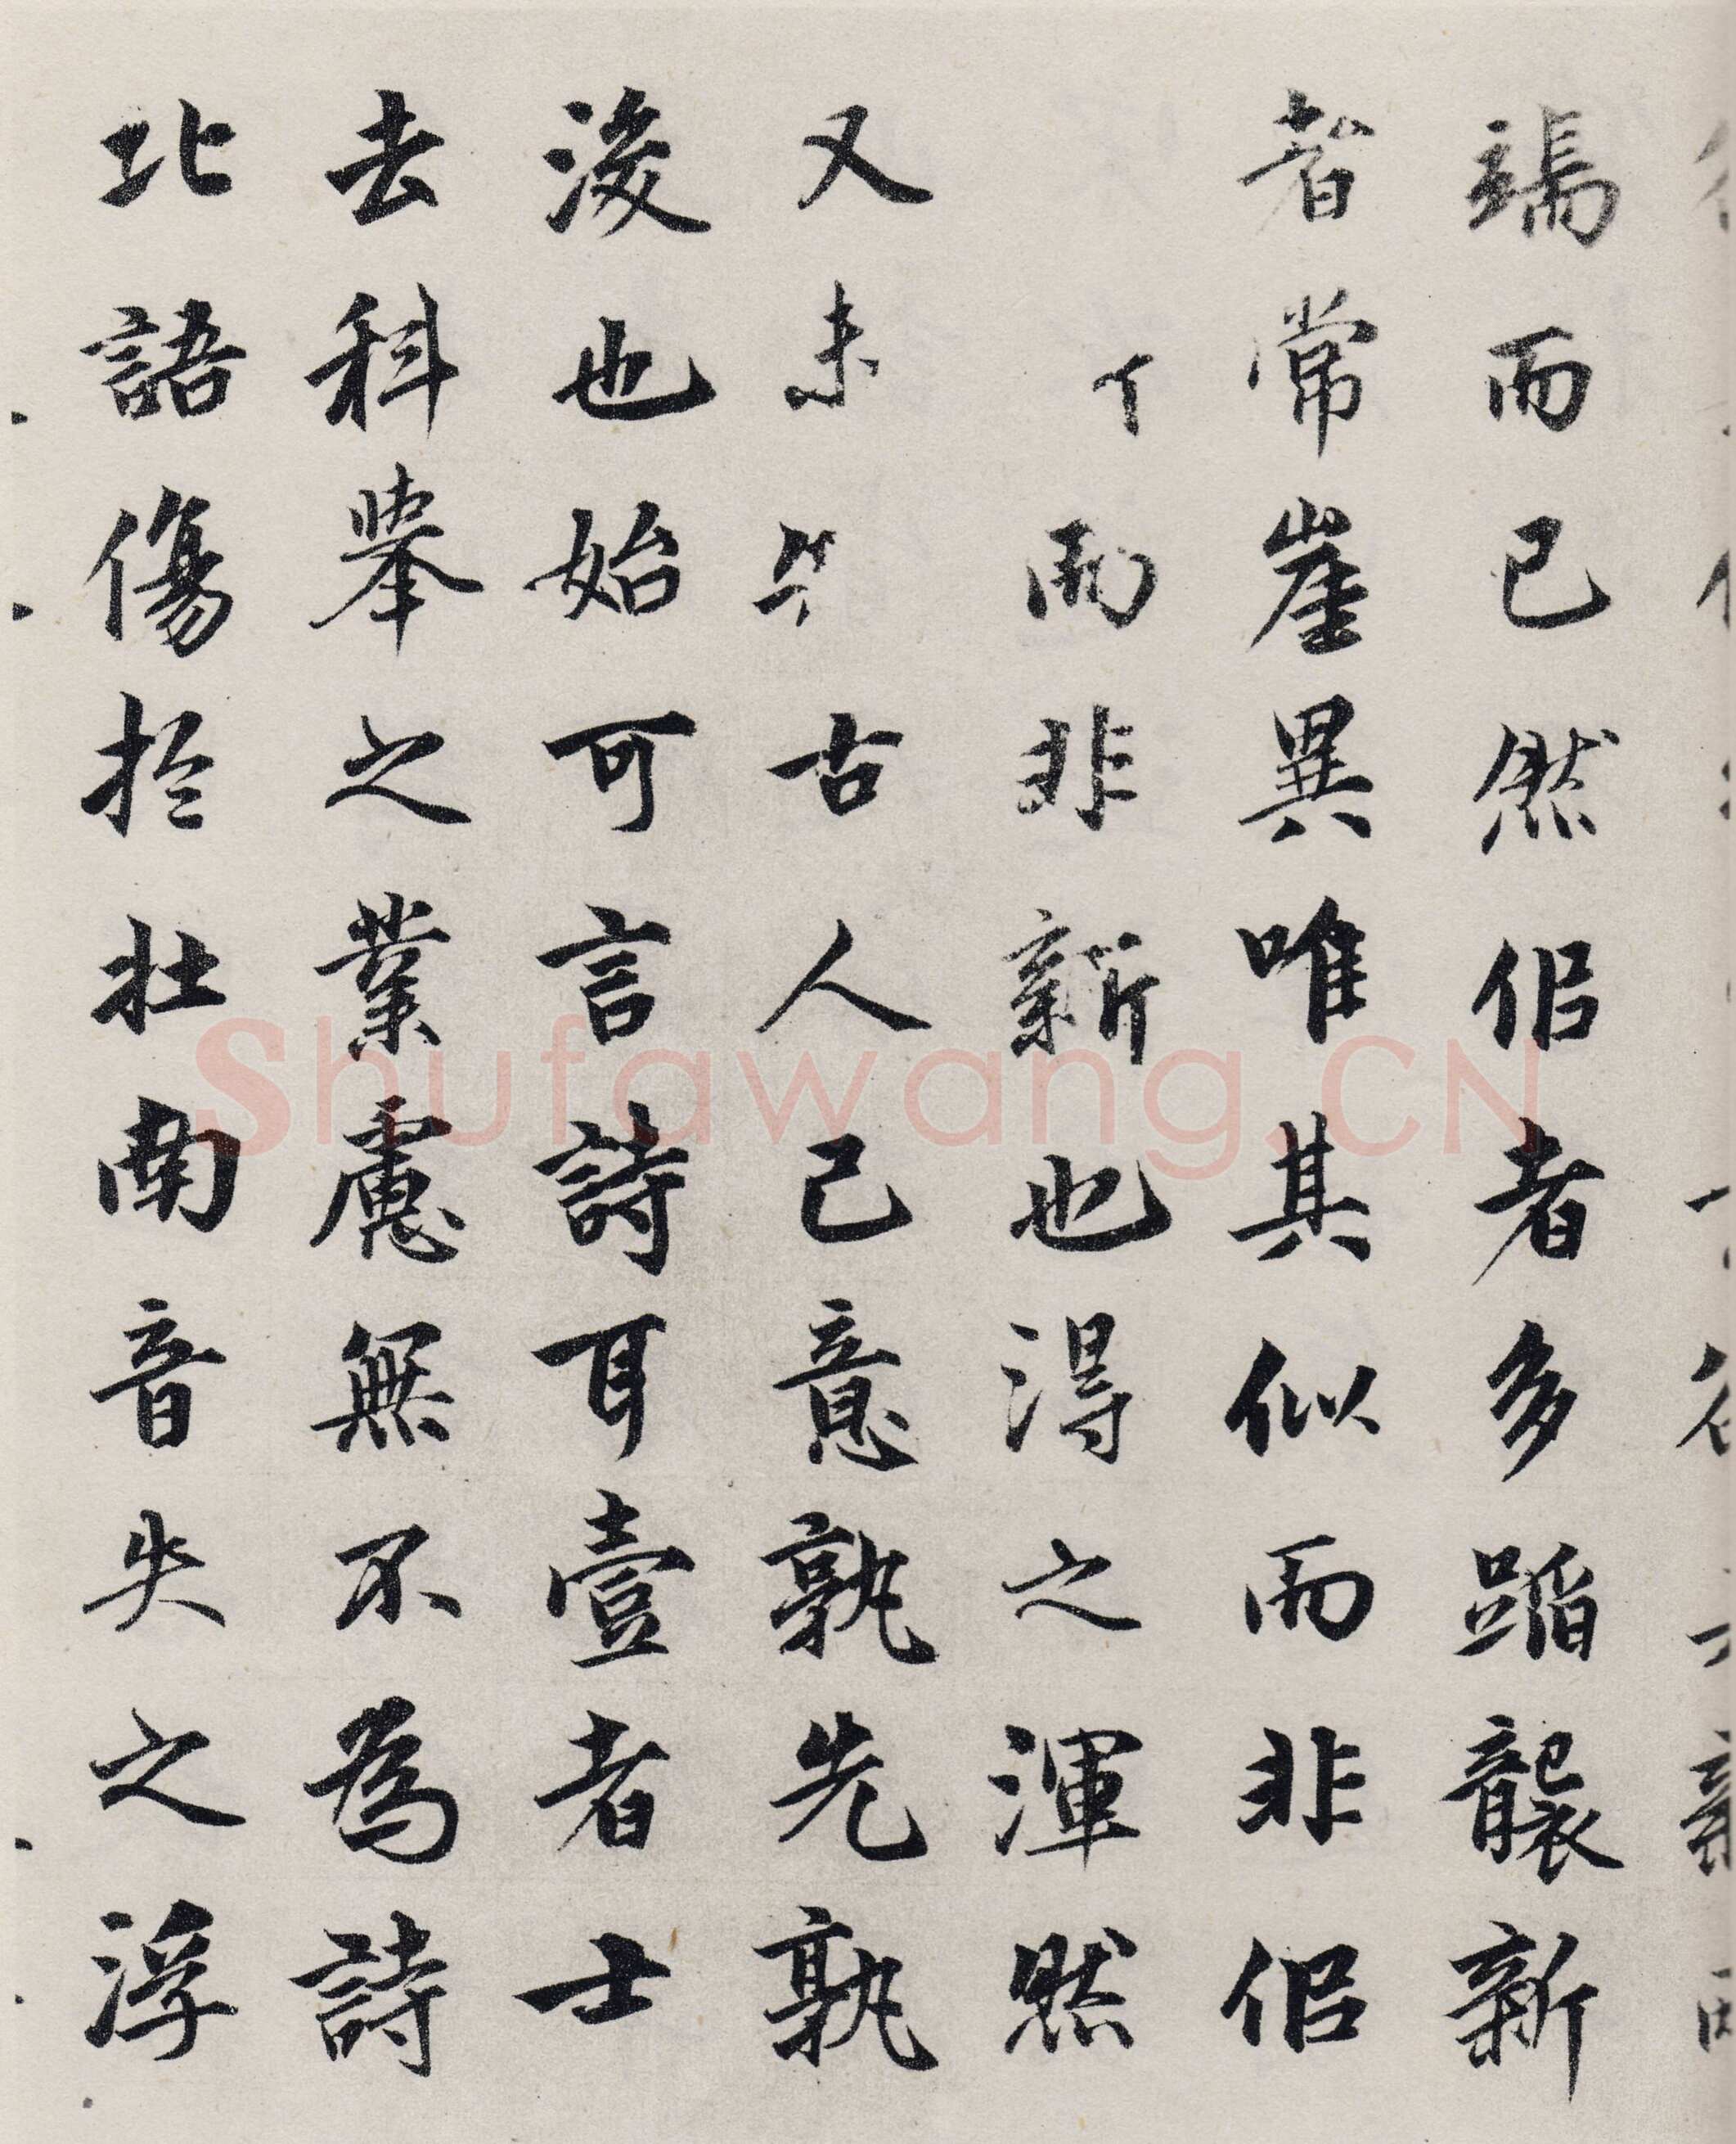 端而已然佀者多蹈襲新
者常崖異唯其似而非佀
而非新也得之渾然
又未古人己意孰先孰
後也始可言詩耳壹者士
去科舉之業慮無不為詩
北語傷於壯南音失之浮
Shufawang.CN